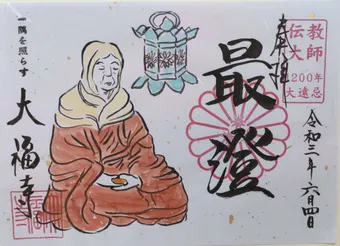 奉拝
伝教
大師
1200年
大遠忌
最澄
令和三年六月四日
一隅を照らす
大福寺